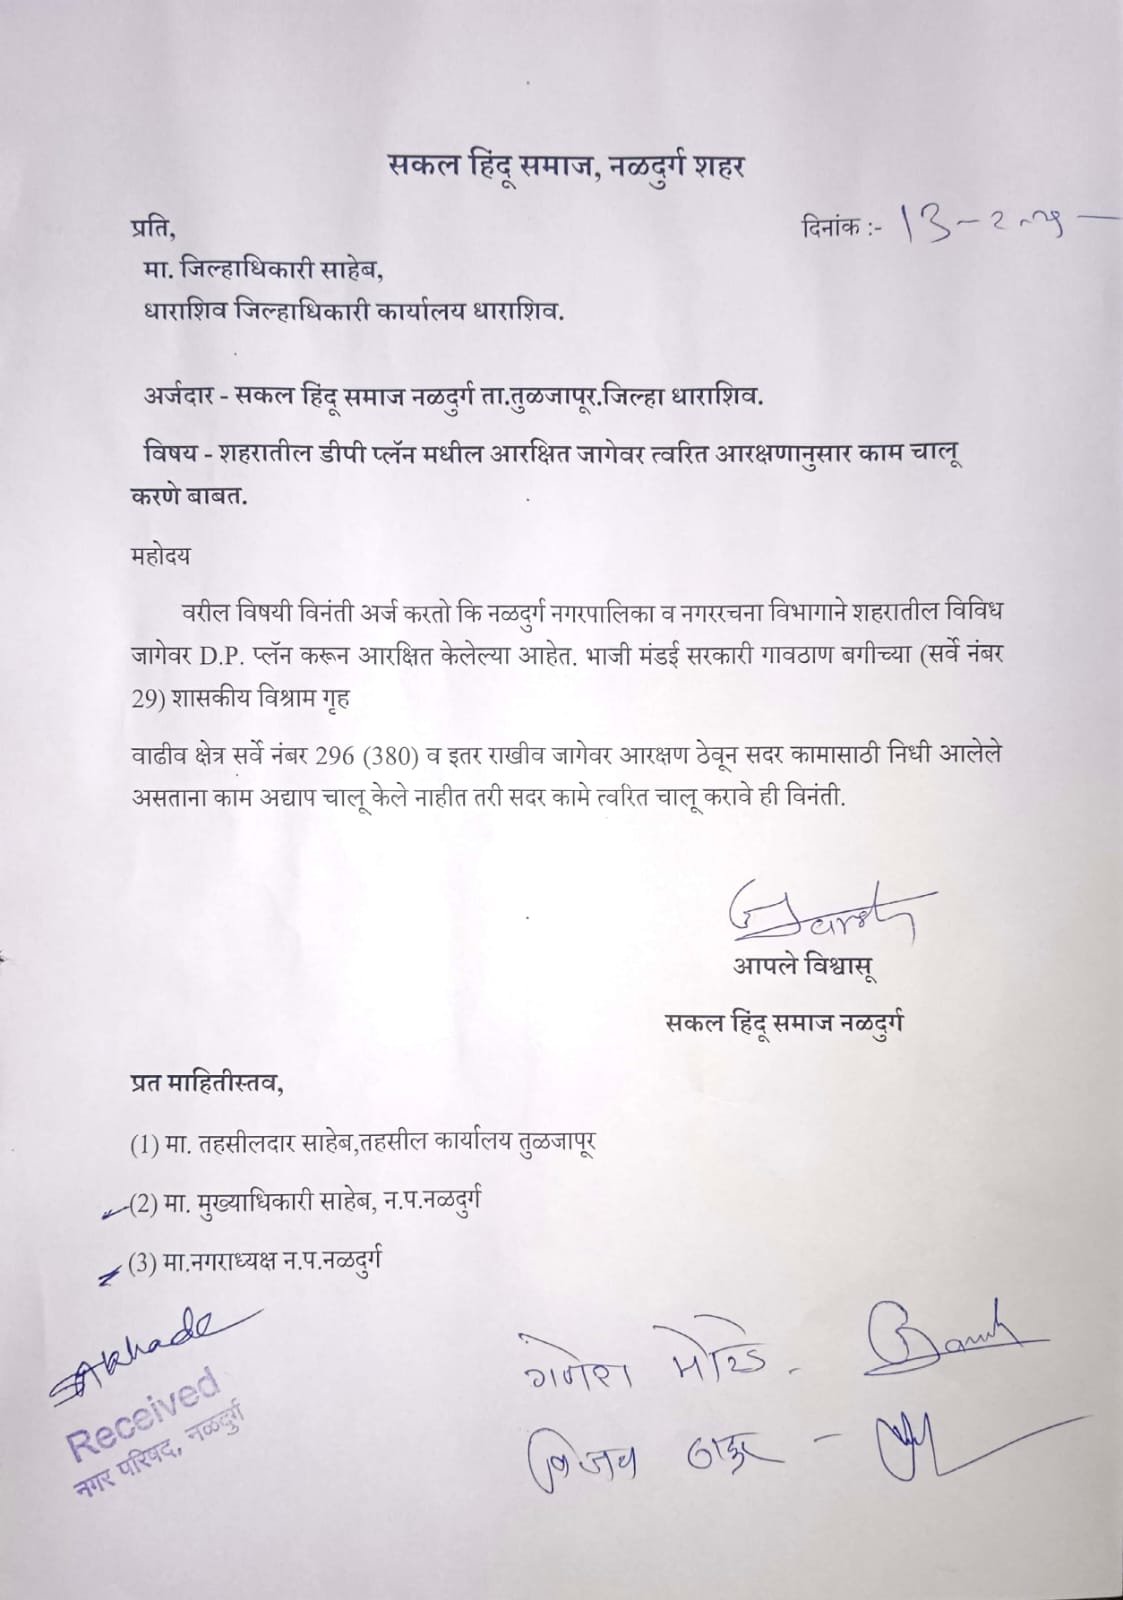 सकल हिंदू समाज, नळदुर्ग शहर
प्रति,
दिनांक :- 13-
मा. जिल्हाधिकारी साहेब,
धाराशिव जिल्हाधिकारी कार्यालय धाराशिव.
अर्जदार - सकल हिंदू समाज नळदुर्ग ता.तुळजापूर.जिल्हा धाराशिव.
विषय - शहरातील डीपी प्लॅन मधील आरक्षित जागेवर त्वरित आरक्षणानुसार काम चालू
करणे बाबत.
महोदय
वरील विषयी विनंती अर्ज करतो कि नळदुर्ग नगरपालिका व नगररचना विभागाने शहरातील विविध
जागेवर D.P. प्लॅन करून आरक्षित केलेल्या आहेत. भाजी मंडई सरकारी गावठाण बगीच्या (सर्वे नंबर
29) शासकीय विश्राम गृह
वाढीव क्षेत्र सर्वे नंबर 296 (380) व इतर राखीव जागेवर आरक्षण ठेवून सदर कामासाठी निधी आलेले
असताना काम अद्याप चालू केले नाहीत तरी सदर कामे त्वरित चालू करावे ही विनंती.
आपले विश्वासू
सकल हिंदू समाज नळदुर्ग
प्रत माहितीस्तव,
(1) मा. तहसीलदार साहेब,तहसील कार्यालय तुळजापूर
(2) मा. मुख्याधिकारी साहेब, न.प.नळदुर्ग
(3) मा.नगराध्यक्ष न.प.नळदुर्ग
गणेश मोरडे -
विजय ठाकूर -
Received
नगर परिषद, नळदुर्ग